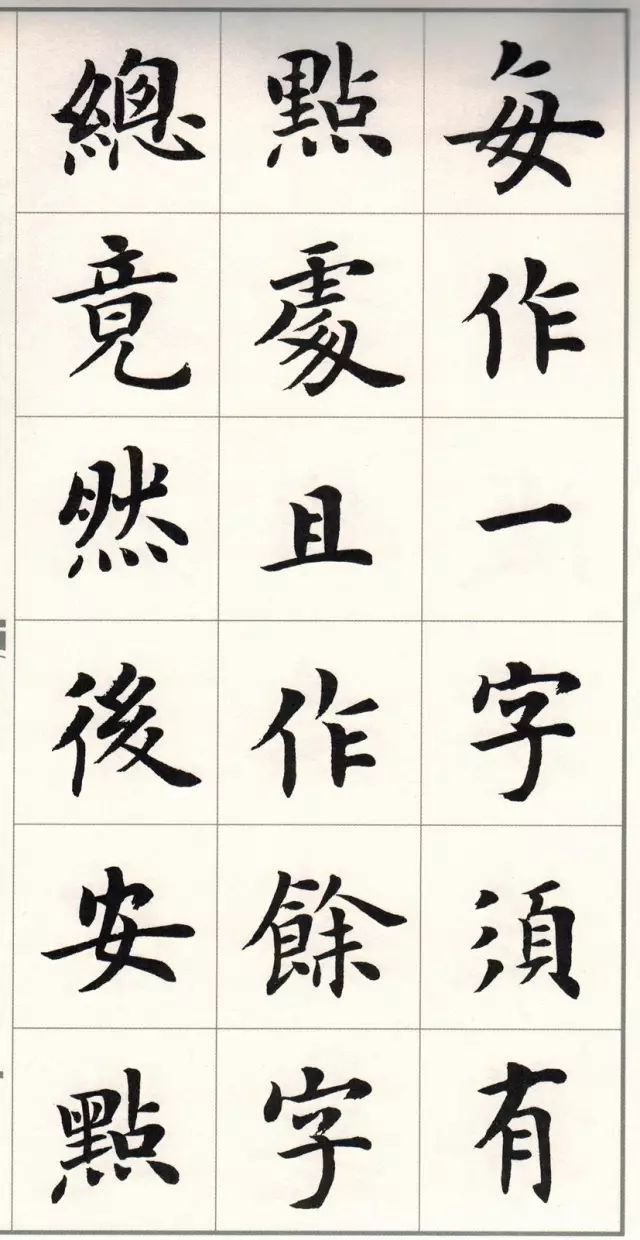 每作一字須有
點處且作餘字
總竟然後安點